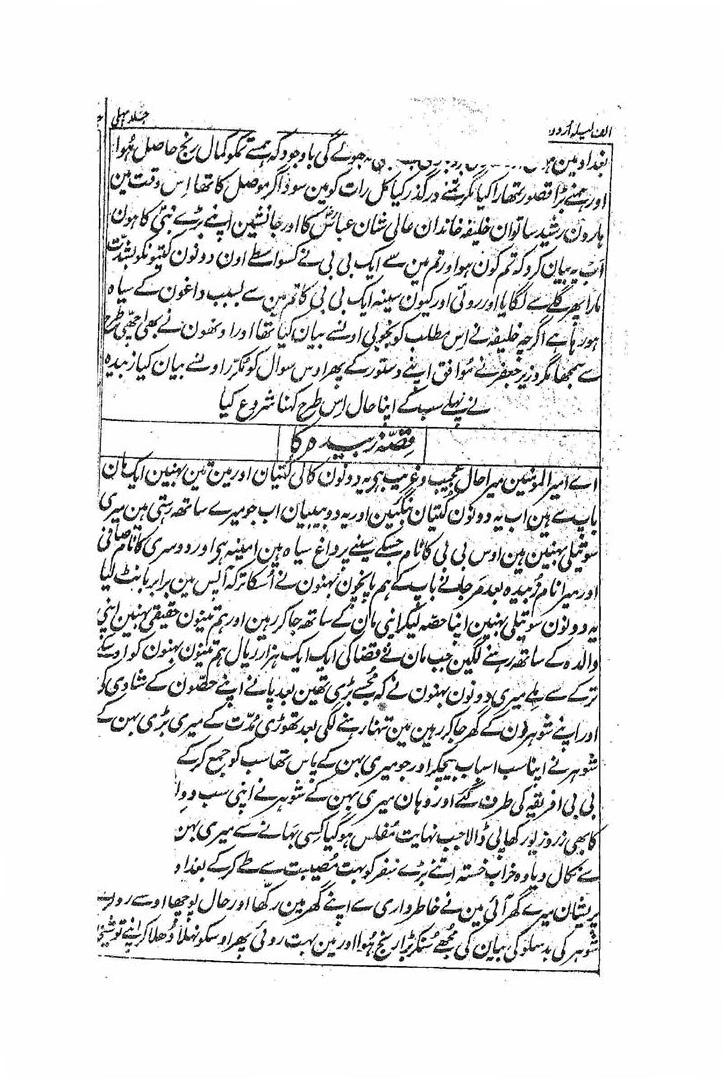 الف لیلہ اُردو
جلد پہلی
بغداد مین ہون بھولے گی باوجودکہ ہمسے تمکو کمال رنج حاصل ہُوا
اور ہمنے بڑا قصور تمھارا کیا مگر تمنے درگذر کیا کل رات کو مین سوداگر موصل کا تھا اِس وقت مین
ہارون رشید ساتوان خلیفہ خاندان عالی شان عباسؓ کا اور جانشین اپنے بڑے نبی کا ہون
اب یہ بیان کرو کہ تم کون ہو اور تم مین سے ایک بی بی نے کسواسطے اون دونون کُتیونکو بشدّت
مارا پھر گلے سے لگایا اور روئی اور کیون سینہ ایک بی بی کا تم مین سے بسبب داغون کے سیاہ
ہو رہا ہے اگرچہ خلیفہ نے اس مطلب کو بخوبی اونسے بیان کیا تھا اور اونھون نے بھی اچھی طرح
سے سمجھا مگر وزیر جعفر نے مُوافق اپنے دستور کے پھر اوس سوال کو مُکرّر اونسے بیان کیا زبیدہ
نے پہلے سب کے اپنا حال اِس طرح کہنا شروع کیا
قِصّہ زبیدہ کا
اے امیر المومنین میرا حال عجیب و غریب ہی یہ دونون کالی کُتیان اور مین تین بہنین ایک مان
باپ سے ہین اب یہ دونون کُتیان بنگئین اور یہ دو بیبیان اب جو میرے ساتھ رہتی ہین میری
سوتیلی بہنین ہین اوس بی بی کا نام جسکے سینے پر داغ سیاہ ہین امینہ ہی اور دوسری کا نام صافی
اور میرا نام زُبیدہ بعد مر جانے باپ کے ہم پانچون بہنون نے اُسکا ترکہ آپس مین برابر بانٹ لیا
یہ دونون سوتیلی بہنین اپنا حصّہ لیکر اپنی مان کے ساتھ جا کر رہین اور ہم تینون حقیقی بہنین اپنی
والدہ کے ساتھ رہنے لگین جب مان نے قضا کی ایک ایک ہزار ریال ہم تینون بہنون کو اوسکے
ترکے سے ملے میری دونون بہنون نے کہ مجھسے بڑی تھین بعد پانے اپنے حصّون کے شادی کی
اور اپنے شوہرون کے گھر جا کر رہین مین تنہا رہنے لگی بعد تھوڑی مُدّت کے میری بڑی بہن کے
شوہر نے اپنا سب اسباب بیچکر اور جو میری بہن کے پاس تھا سب کو جمع کر کے
بی بی افریقہ کی طرف گئے اور وہان میری بہن کے شوہر نے اپنی سب دو
کا بھی زر و زیور کھا پی ڈالا جب نہایت مُفلس ہو گیا کسی بہانے سے میری بہن
سے نکال دیا وہ خراب خستہ اتنے بڑے سفر کو بہت مُصیبت سے طے کر کے بعد او
پریشان میرے گھر آئی مین نے خاطرداری سے اپنے گھر مین رکّھا اور حال پوچھا اوسنے رو
شوہر کی بدسلوکی بیان کی مُجھے سُنکر بڑا رنج ہُوا اور مین بہت روئی پھر اوسکو نہلا دُھلا کر اپنے